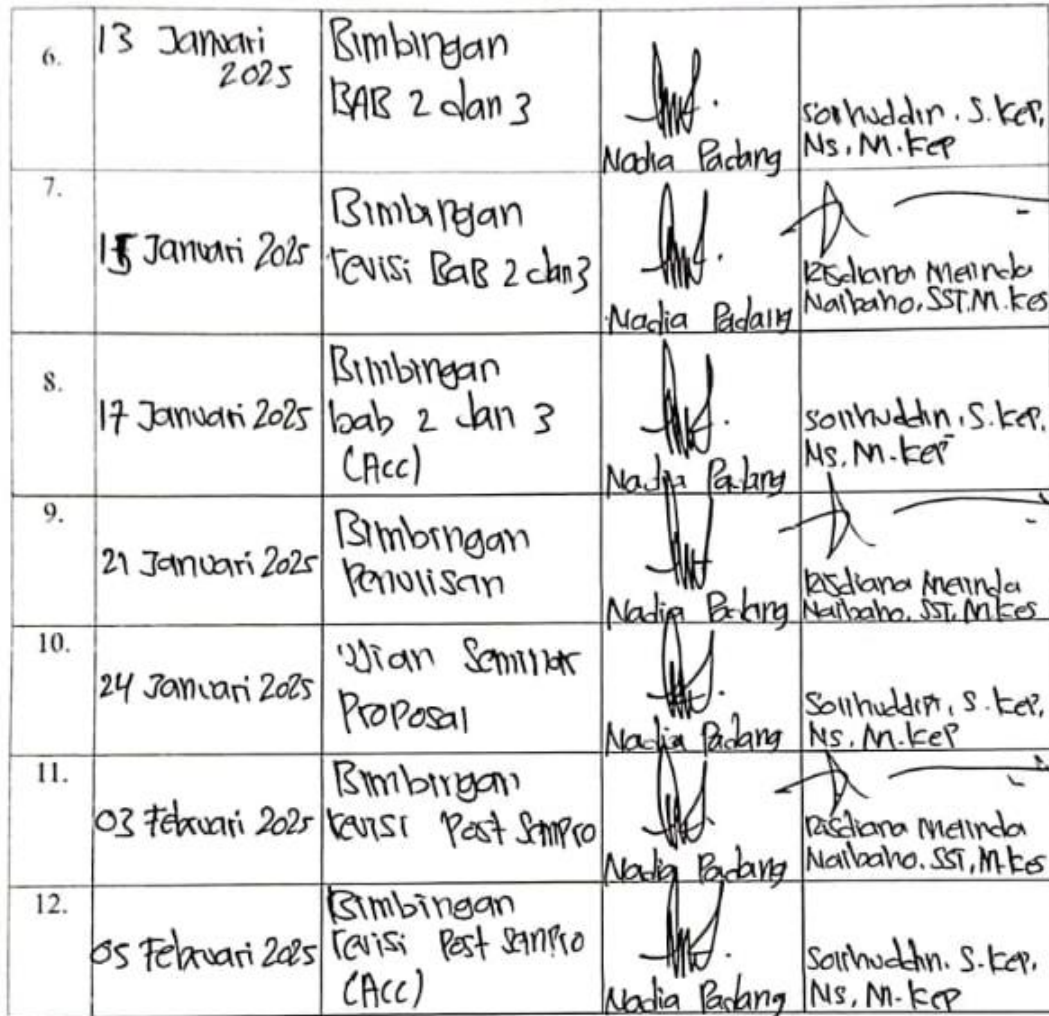 6.
13 Januari
2025
Bimbingan
BAB 2 dan 3
Nadia Padang
Solihuddin. S.Kep,
Ns, M.Kep
7.
15 Januari 2025
Bimbingan
revisi BAB 2 dan 3
Nadia Padang
Risdiana Melinda
Naibaho, SST, M.Kes
8.
17 Januari 2025
Bimbingan
bab 2 dan 3
(Acc)
Nadia Padang
Solihuddin, S.Kep,
Ns, M.Kep
9.
21 Januari 2025
Bimbingan
Penulisan
Nadia Padang
Risdiana Melinda
Naibaho, SST, M.Kes
10.
24 Januari 2025
Ujian Seminar
Proposal
Nadia Padang
Solihuddin, S.Kep,
Ns, M.Kep
11.
03 Februari 2025
Bimbingan
revisi Post Sempro
Nadia Padang
Risdiana Melinda
Naibaho, SST, M.Kes
12.
05 Februari 2025
Bimbingan
revisi Post Sempro
(Acc)
Nadia Padang
Solihuddin. S.Kep,
Ns, M.Kep